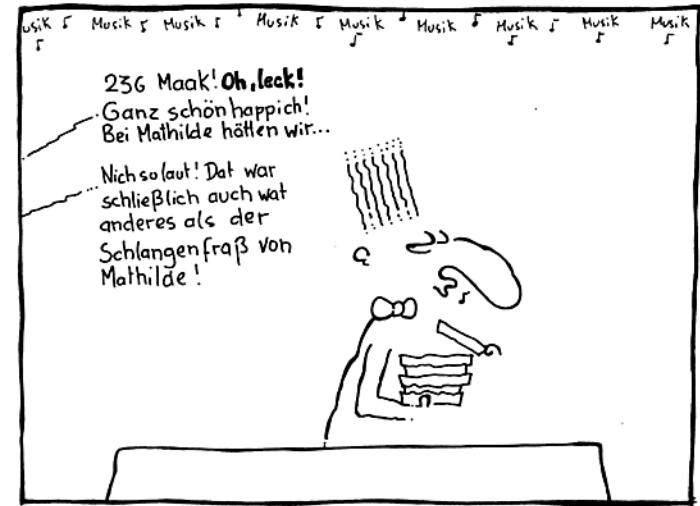 usik Musik Musik Musik Musik Musik Musik Musik Musik
236 Maak! Oh, leck!
Ganz schön happich!
Bei Mathilde hätten wir...
Nich so laut! Dat war
schließlich auch wat
anderes als der
Schlangenfraß von
Mathilde!